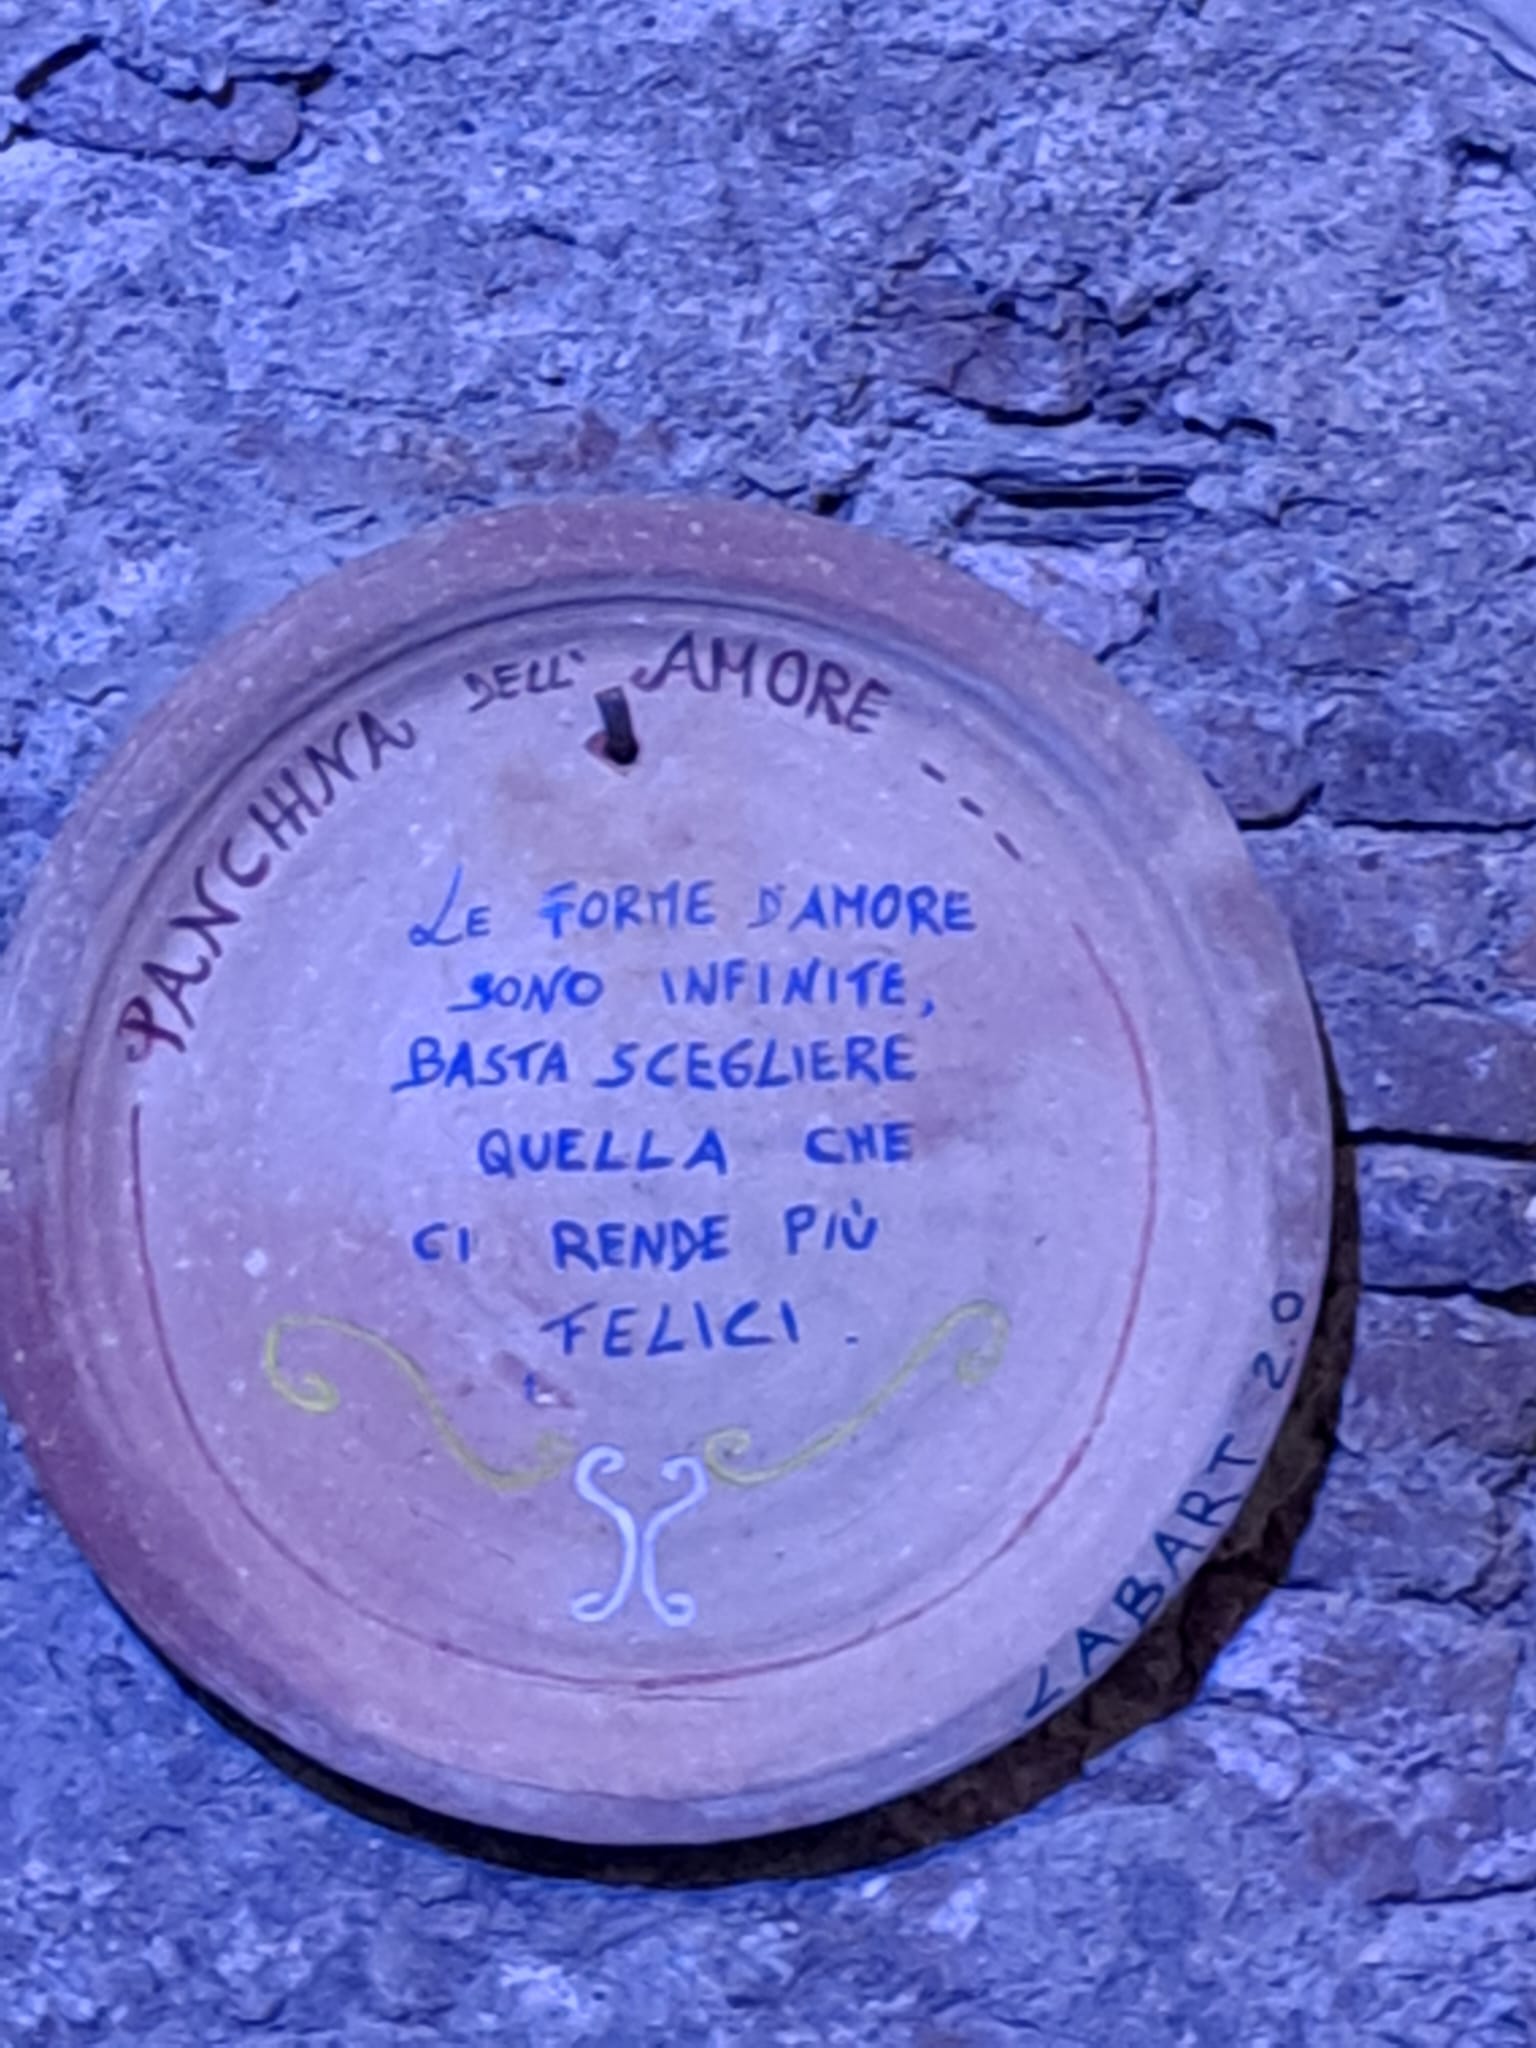 PANCHINA DELL' AMORE ---
LE FORME D'AMORE
SONO INFINITE,
BASTA SCEGLIERE
QUELLA CHE
CI RENDE PIÙ
FELICI.
LABART 2.0